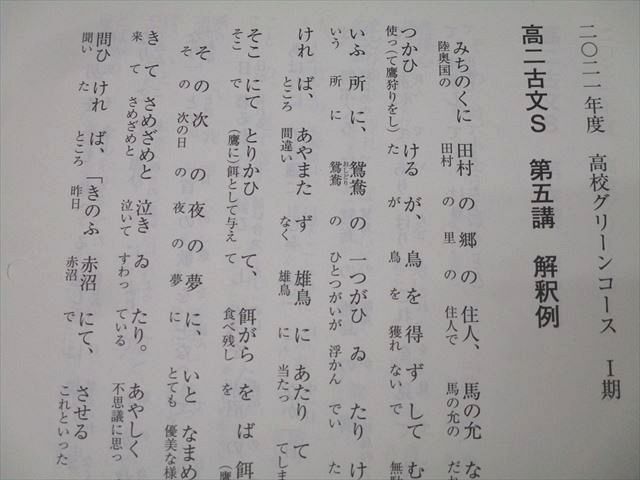 二〇二一年度 高校グリーンコース Ⅰ期
高二古文S 第五講 解釈例
みちのくに 田村 の 郷 の 住人、 馬の允 な
陸奥国の 田村 の 里 の 住人で 馬の允の だれ
つかひ ける が、 鳥 を 得 ず して む
使っ(て鷹狩りをし) た が 鳥 を 獲れ ない で 無駄
いふ 所 に、 鴛鴦 の 一つがひ ゐ たり け
いう 所 に 鴛鴦 の ひとつがいが 浮かん でい た
おしどり
けれ ば、 あやまた ず 雄鳥 に あたり て
ところ 間違い なく 雄鳥 に 当たっ てしま
そこ にて とりかひ て、 餌がら を ば 餌
そこ で (鷹に)餌として与え て 食べ残し を (鷹
そ の 次 の 夜 の 夢 に、 いと なまめ
そ の 次の日 の 夜 の 夢 に とても 優美な様
き て さめざめと 泣き ゐ たり。 あやしく
来 て さめざめと 泣いて すわっ ている 不思議に思っ
問ひ けれ ば、 「きのふ 赤沼 にて、 させる
聞い た ところ 昨日 赤沼 で これといった